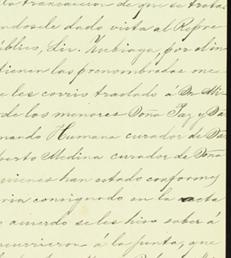 la transaccion de que se trata
ndosele dado vista al Repre
ublico, Sr. Zubiaga, por din
tienen las prenombradas me
e les corrió traslado á Dn Mi
de los menores Doña Paz y Da
nando Humana curador de Da
berto Medina curador de Doña
quienes han estado conformes
ria consignado en la acta
o acuerdo se les hizo saber á
ncurrieron á la junta, que